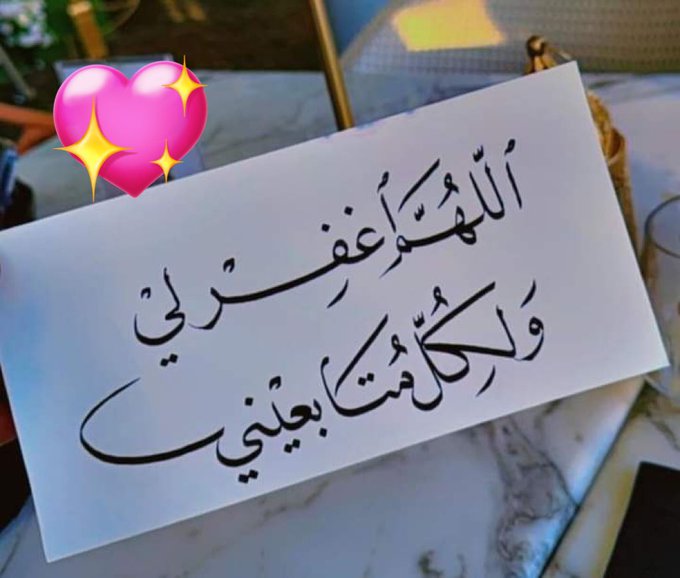 ٱللّهُمَّ ٱغفِرْ لِيْ
وَلِكُلِّ مُتَابعِيْنِي